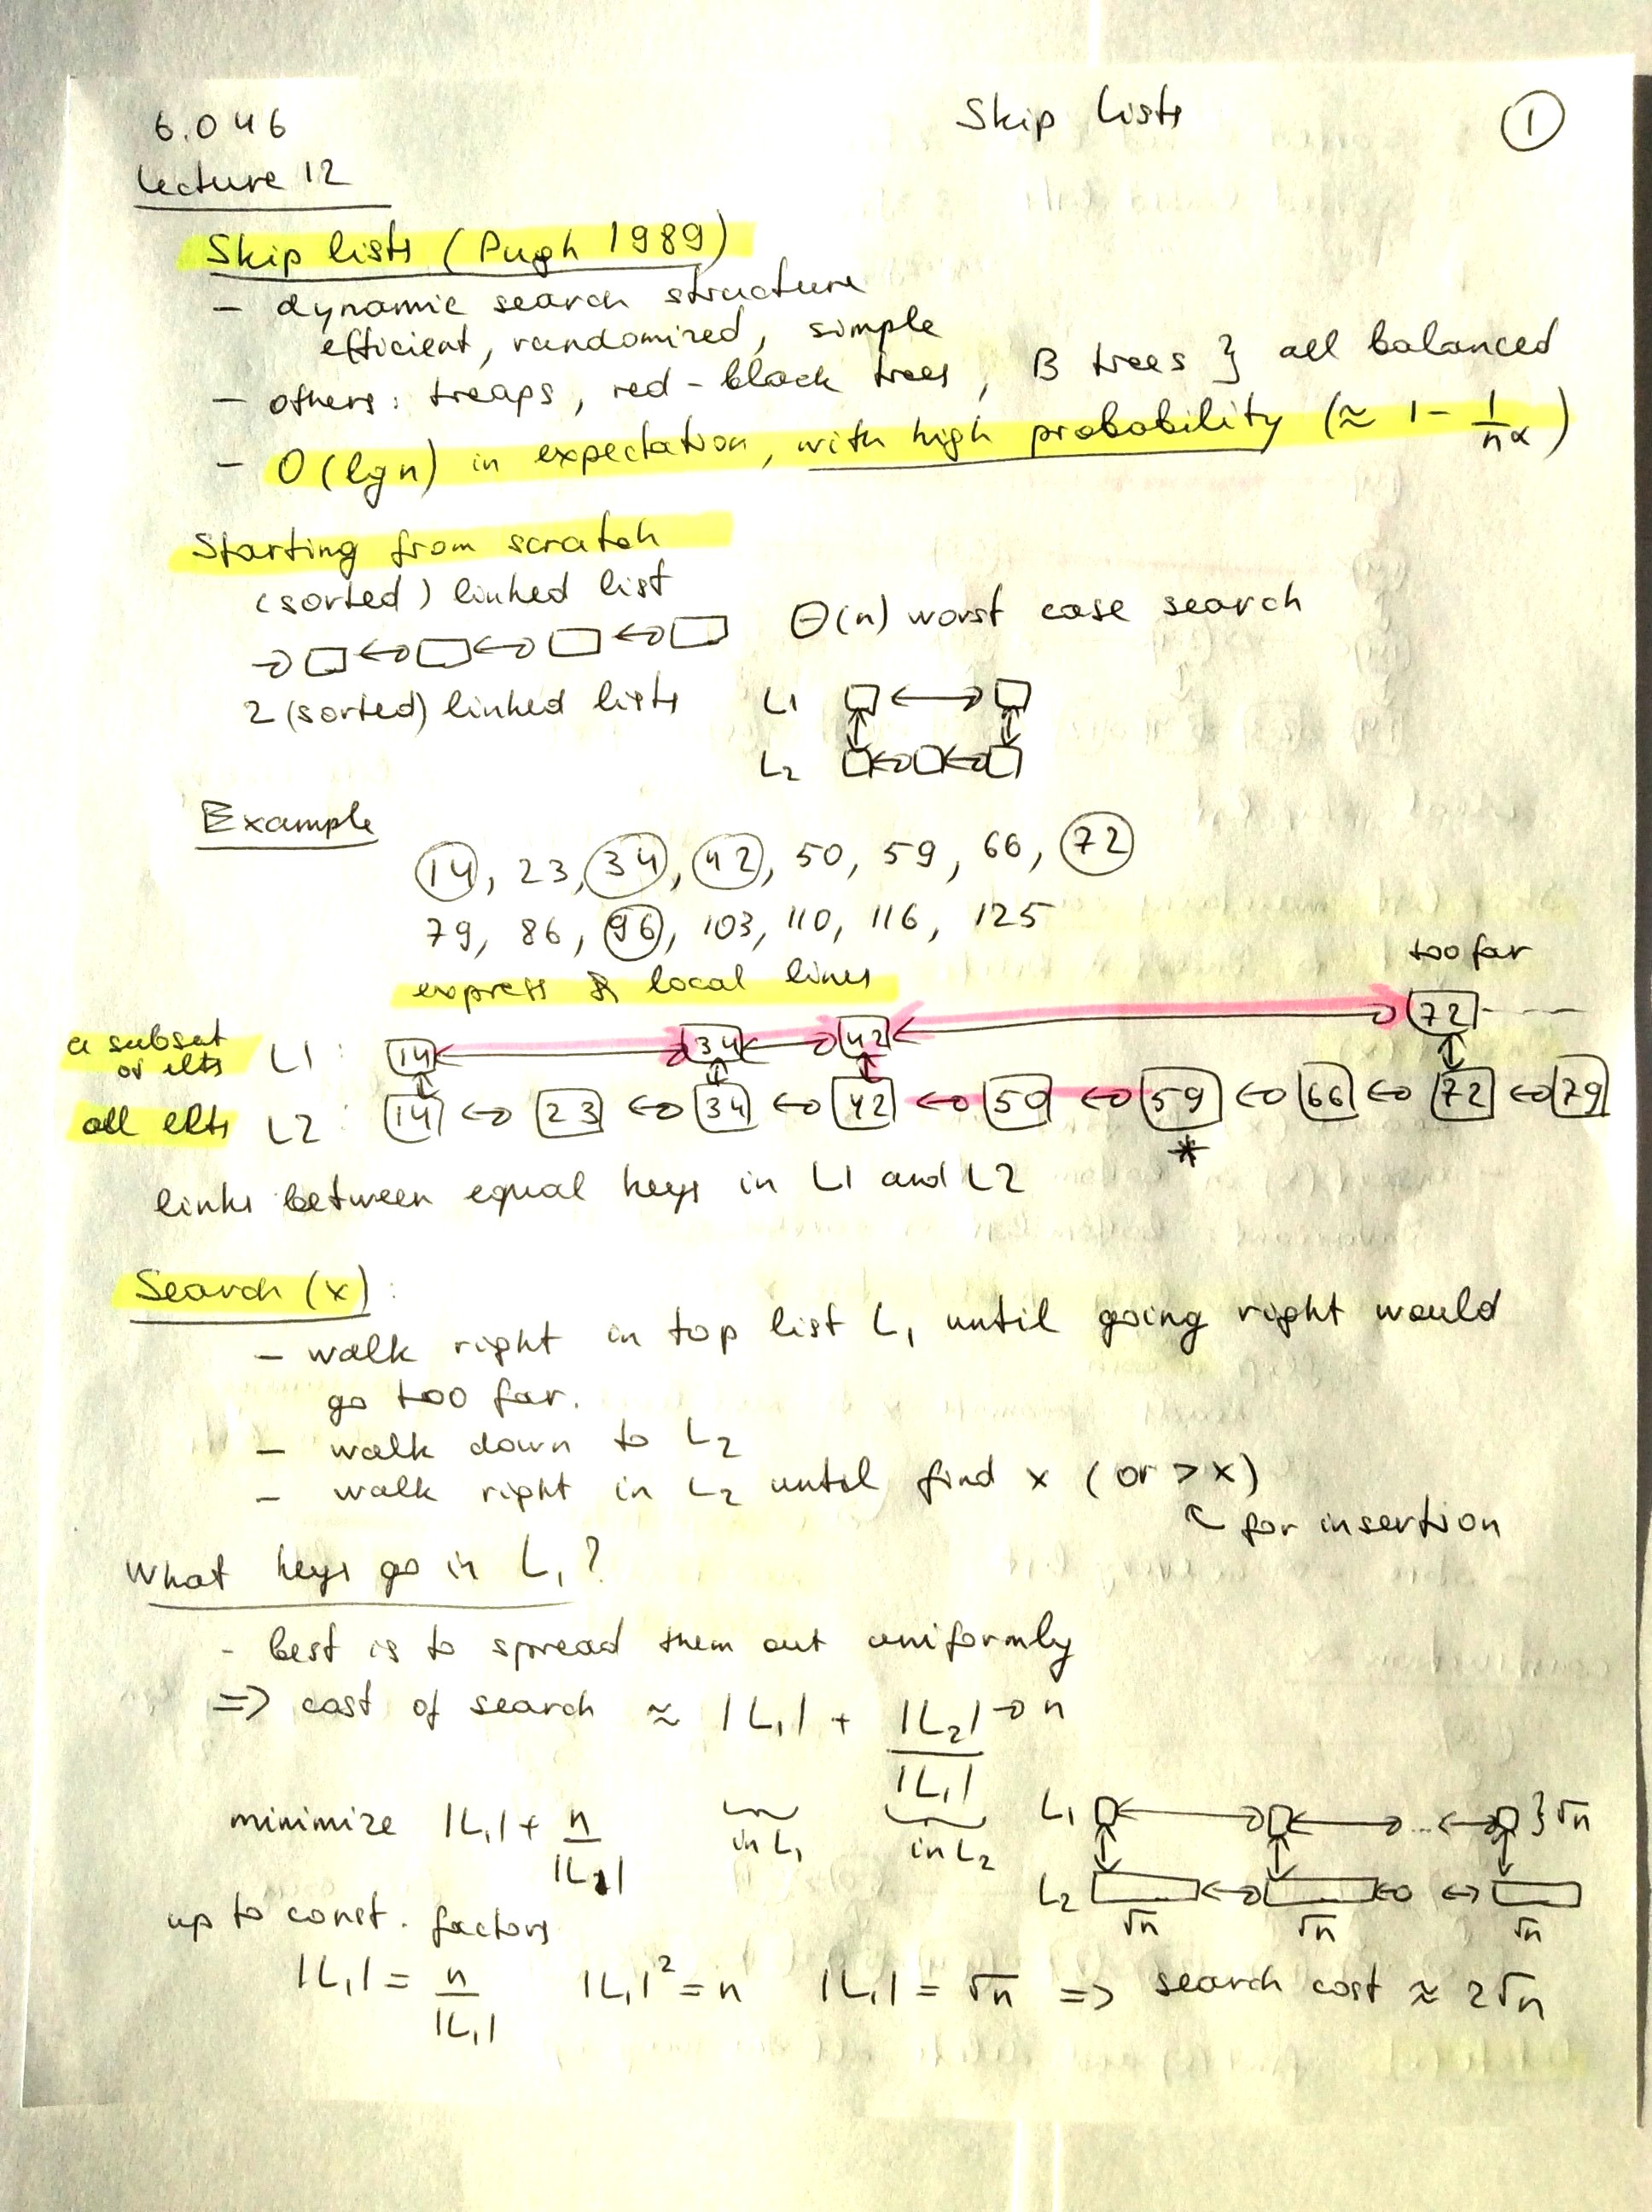 6.046
Lecture 12
Skip lists
1
Skip lists (Pugh 1989)
- dynamic search structure
efficient, randomized, simple
- others: treaps, red-black trees, B trees } all balanced
- O(lg n) in expectation, with high probability (≈ 1 - 1/n^α)
Starting from scratch
(sorted) linked list
Θ(n) worst case search
2 (sorted) linked lists
L1
L2
Example
14, 23, 34, 42, 50, 59, 66, 72
79, 86, 96, 103, 110, 116, 125
express & local lines
too far
a subset of elts L1: 14 34 42 72
all elts L2: 14 ↔ 23 ↔ 34 ↔ 42 ↔ 50 ↔ 59 ↔ 66 ↔ 72 ↔ 79
*
links between equal keys in L1 and L2
Search (x):
- walk right in top list L1 until going right would
go too far.
- walk down to L2
- walk right in L2 until find x (or > x)
↖ for insertion
What keys go in L1?
- best is to spread them out uniformly
=> cost of search ≈ |L1| + |L2|/|L1| → n
in L1 in L2
minimize |L1| + n/|L1|
L1 ... } √n
L2
√n √n √n
up to const. factors
|L1| = n/|L1| |L1|² = n |L1| = √n => search cost ≈ 2√n